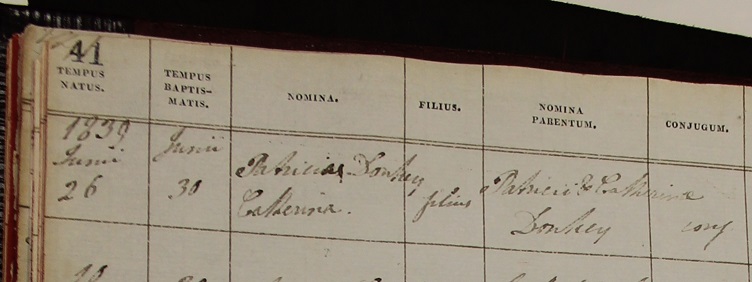 41
TEMPUS NATUS.
TEMPUS BAPTIS-MATIS.
NOMINA.
FILIUS.
NOMINA PARENTUM.
CONJUGUM.
1839
Junii
26
Junii
30
Patricius Donkey
Catherina.
filius
Patricii & Catherina
Donkey
conj